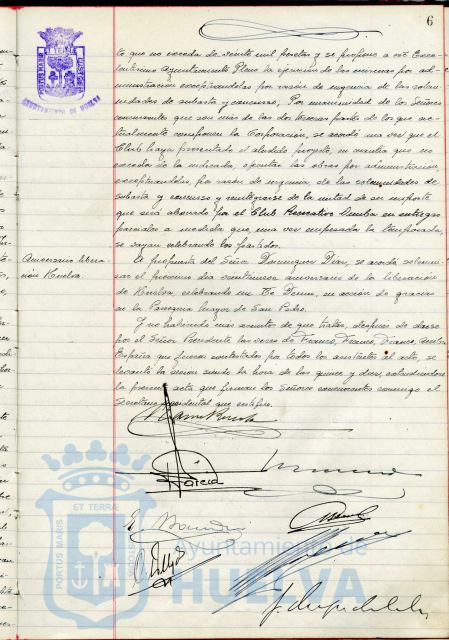 6
AYUNTAMIENTO DE HUELVA
to que no exceda de veinte mil pesetas y se propuso a este Exce-
lentísimo Ayuntamiento Pleno la ejecución de las mismas por ad-
ministración exceptuándolas por razón de urgencia de las solem-
nidades de subasta y concurso. Por unanimidad de los Señores
concurrentes que son más de las dos terceras partes de los que ac-
tualmente componen la Corporación, se acordó una vez que el
Club haya presentado el aludido proyecto, en cuantía que no
exceda de la indicada, ejecutar las obras por administración,
exceptuándolas, por razón de urgencia, de las solemnidades de
subasta y concurso y reintegrarse de la mitad de su importe
que será abonado por el Club Recreativo Huelva en entregas
parciales a medida que, una vez empezada la temporada,
se vayan celebrando los partidos.
Aniversario libera-
ción Huelva.
A propuesta del Señor Dominguez Diaz, se acordó solemni-
zar el próximo día veintinueve aniversario de la liberación
de Huelva, celebrando un Te Deum, en acción de gracias
en la Parroquia Mayor de San Pedro.
Y no habiendo más asuntos de que tratar, después de darse
por el Señor Presidente las voces de Franco, Franco, Franco, Arriba
España que fueron contestadas por todos los asistentes al acto, se
levantó la sesión siendo la hora de las quince y diez, extendiéndose
la presente acta que firman los Señores concurrentes conmigo el
Secretario accidental que certifico.
García
ET TERRAE
PORTUS MARIS
Ayuntamiento de
HUELVA